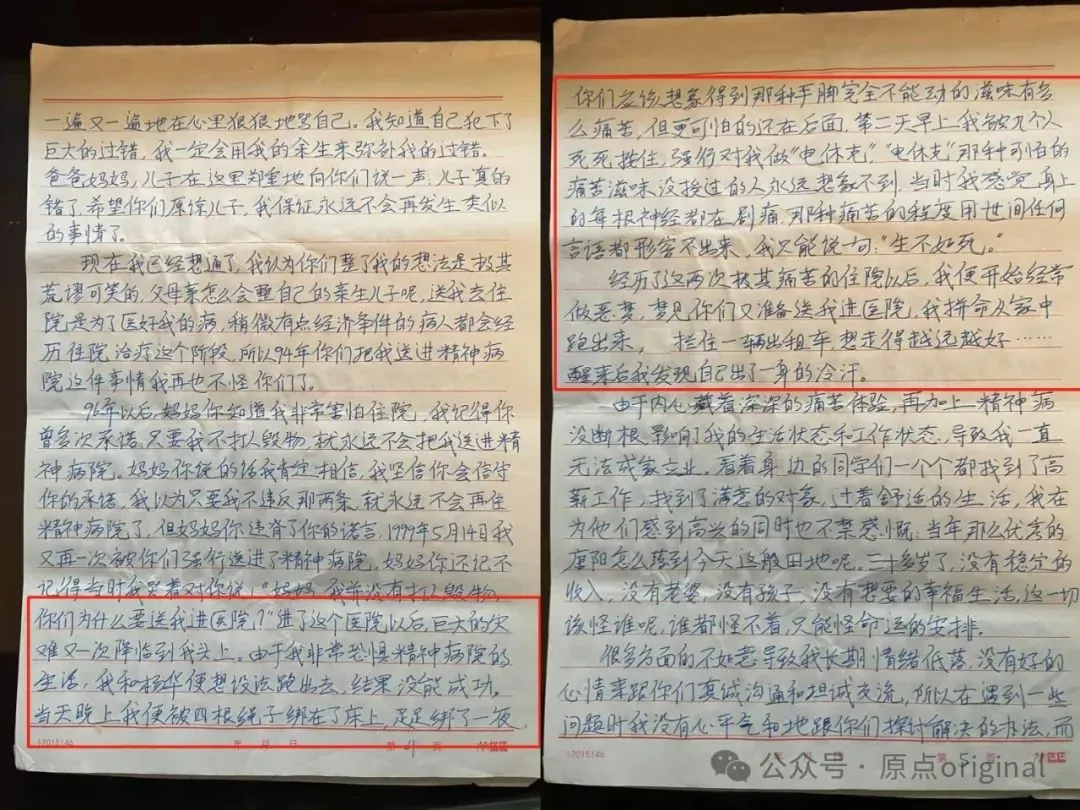 一遍又一遍地在心里狠狠地骂自己。我知道自己犯下了
巨大的过错,我一定会用我的余生来弥补我的过错。
爸爸妈妈,儿子在这里郑重地向你们说一声:儿子真的
错了,希望你们原谅儿子,我保证永远不会再发生类似
的事情了。
现在我已经想通了,我认为你们整了我的想法是极其
荒谬可笑的,父母亲怎么会整自己的亲生儿子呢,送我去住
院是为了医好我的病,稍微有点经济条件的病人都会经
历住院治疗这个阶段,所以94年你们把我送进精神病
院这件事情我再也不怪你们了。
96年以后,妈妈你知道我非常害怕住院,我记得你
曾多次承诺,只要我不打人毁物,就永远不会把我送进精
神病院。妈妈你说的话我肯定相信,我坚信你会信守
你的承诺,我以为只要我不违反那两条,就永远不会再住
精神病院了,但妈妈你违背了你的诺言,1999年5月14日我
又再一次被你们强行送进了精神病院,妈妈你还记不
记得当时我哭着对你说:"妈妈,我并没有打人毁物,
你们为什么要送我进医院?"进了这个医院以后,巨大的灾
难又一次降临到我头上。由于我非常恐惧精神病院的
生活,我和杨华便想设法跑出去,结果没能成功。
当天晚上我便被四根绳子绑在了床上,足足绑了一夜,
17015146 年 月 日 第 4 页
你们应该想象得到那种手脚完全不能动的滋味有多
么痛苦,但更可怕的还在后面,第二天早上我被几个人
死死按住,强行对我做"电休克","电休克"那种可怕的
痛苦滋味没接过的人永远想象不到,当时我感觉身上
的每根神经都在剧痛,那种痛苦的程度用世间任何
言语都形容不出来,我只能说一句:"生不如死。"
经历了这两次极其痛苦的住院以后,我便开始经常
做恶梦,梦见你们又准备送我进医院,我拼命从家中
跑出来,拦住一辆出租车,想走得越远越好……
醒来后我发现自己出了一身的冷汗。
由于内心藏着深深的痛苦体验,再加上精神病
没断根,影响了我的生活状态和工作状态,导致我一直
无法成家立业。看着身边的同学们一个个都找到了高
薪工作,找到了满意的对象,过着舒适的生活,我在
为他们感到高兴的同时也不禁感慨:当年那么优秀的
怎么落到今天这般田地呢。三十多岁了,没有稳定的
收入,没有老婆,没有孩子,没有想要的幸福生活,这一切
该怪谁呢,谁都怪不着,只能怪命运的安排。
很多方面的不如意导致我长期情绪低落,没有好的
心情来跟你们真诚沟通和坦诚交流,所以在遇到一些
问题时我没有心平气和地跟你们探讨解决的办法,而
17015146 年 月 日 第 5 页
公众号·原点original